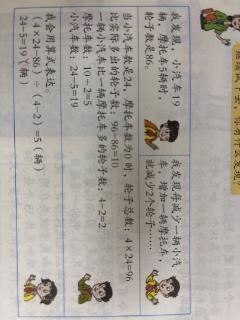 我发现，小汽车19
辆，摩托车5辆时，
轮子数是86。
我发现每减少一辆小汽
车，增加一辆摩托车，
就减少2个轮子……
当小汽车数是24，摩托车数为0时，轮子总数：4×24=96
比实际多出的轮子数：96-86=10
一辆小汽车比一辆摩托车多的轮子数：4-2=2
摩托车数：10÷2=5
小汽车数：24-5=19
我会用算式表达。
(4×24-86)÷(4-2)=5(辆)
24-5=19(辆)